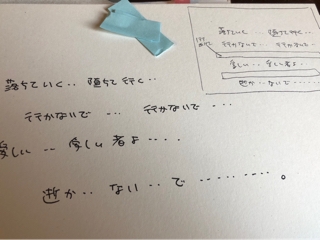 落ちていく‥ 堕ちて行く‥
行かないで … 行かないで …
愛しい … 愛しい 者よ ‥‥
逝か‥ ない‥ で ………。
落ちていく‥ 堕ちて行く‥
行かないで … 行かないで …
愛しい‥ 愛しい者よ‥
逝か‥ないで……